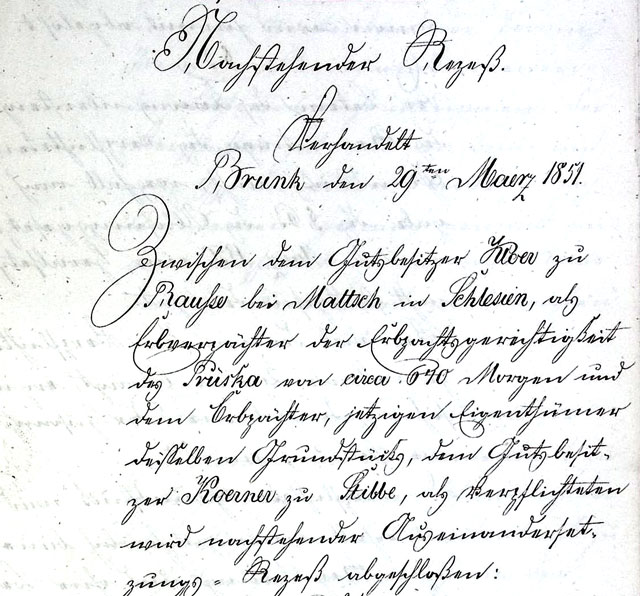 Nachstehender Rezeß.
Verhandelt
P, Brunk den 29ten Maerz 1851.
Zwischen dem Gutsbesitzer Kiber zu
Rauße bei Maltsch in Schlesien, als
Erbverpächter der Erbpachtsgerechtigkeit
des Prüska von circa 640 Morgen und
dem Erbpächter, jetzigen Eigenthümer
deisselben Grundstücks, dem Gutsbesit-
zer Koerner zu Stibbe, als Verpflichteten
wird nachstehender Auseinanderset-
zungs = Rezeß abgeschloßen: